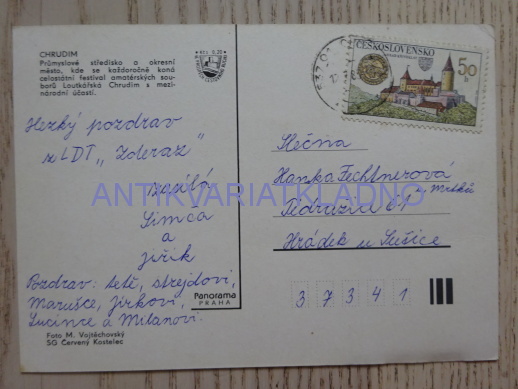 CHRUDIM
Průmyslové středisko a okresní
město, kde se každoročně koná
celostátní festival amatérských sou-
borů Loutkářská Chrudim s mezi-
národní účastí.
Kčs 0,20
Hezký pozdrav
z LDT „Zderaz"
posílá
Simca
a
jiřík
Pozdrav: tetě, strejdovi,
Marušce, jirkovi,
Lucince a Milanovi.
Foto M. Vojtěchovský
SG Červený Kostelec
Panorama
PRAHA
ČESKOSLOVENSKO
50
Slečna
Hanka Fechtnerová
Hrádek u Sušice
3 7 3 4 1
ANTIKVARIATKLADNO